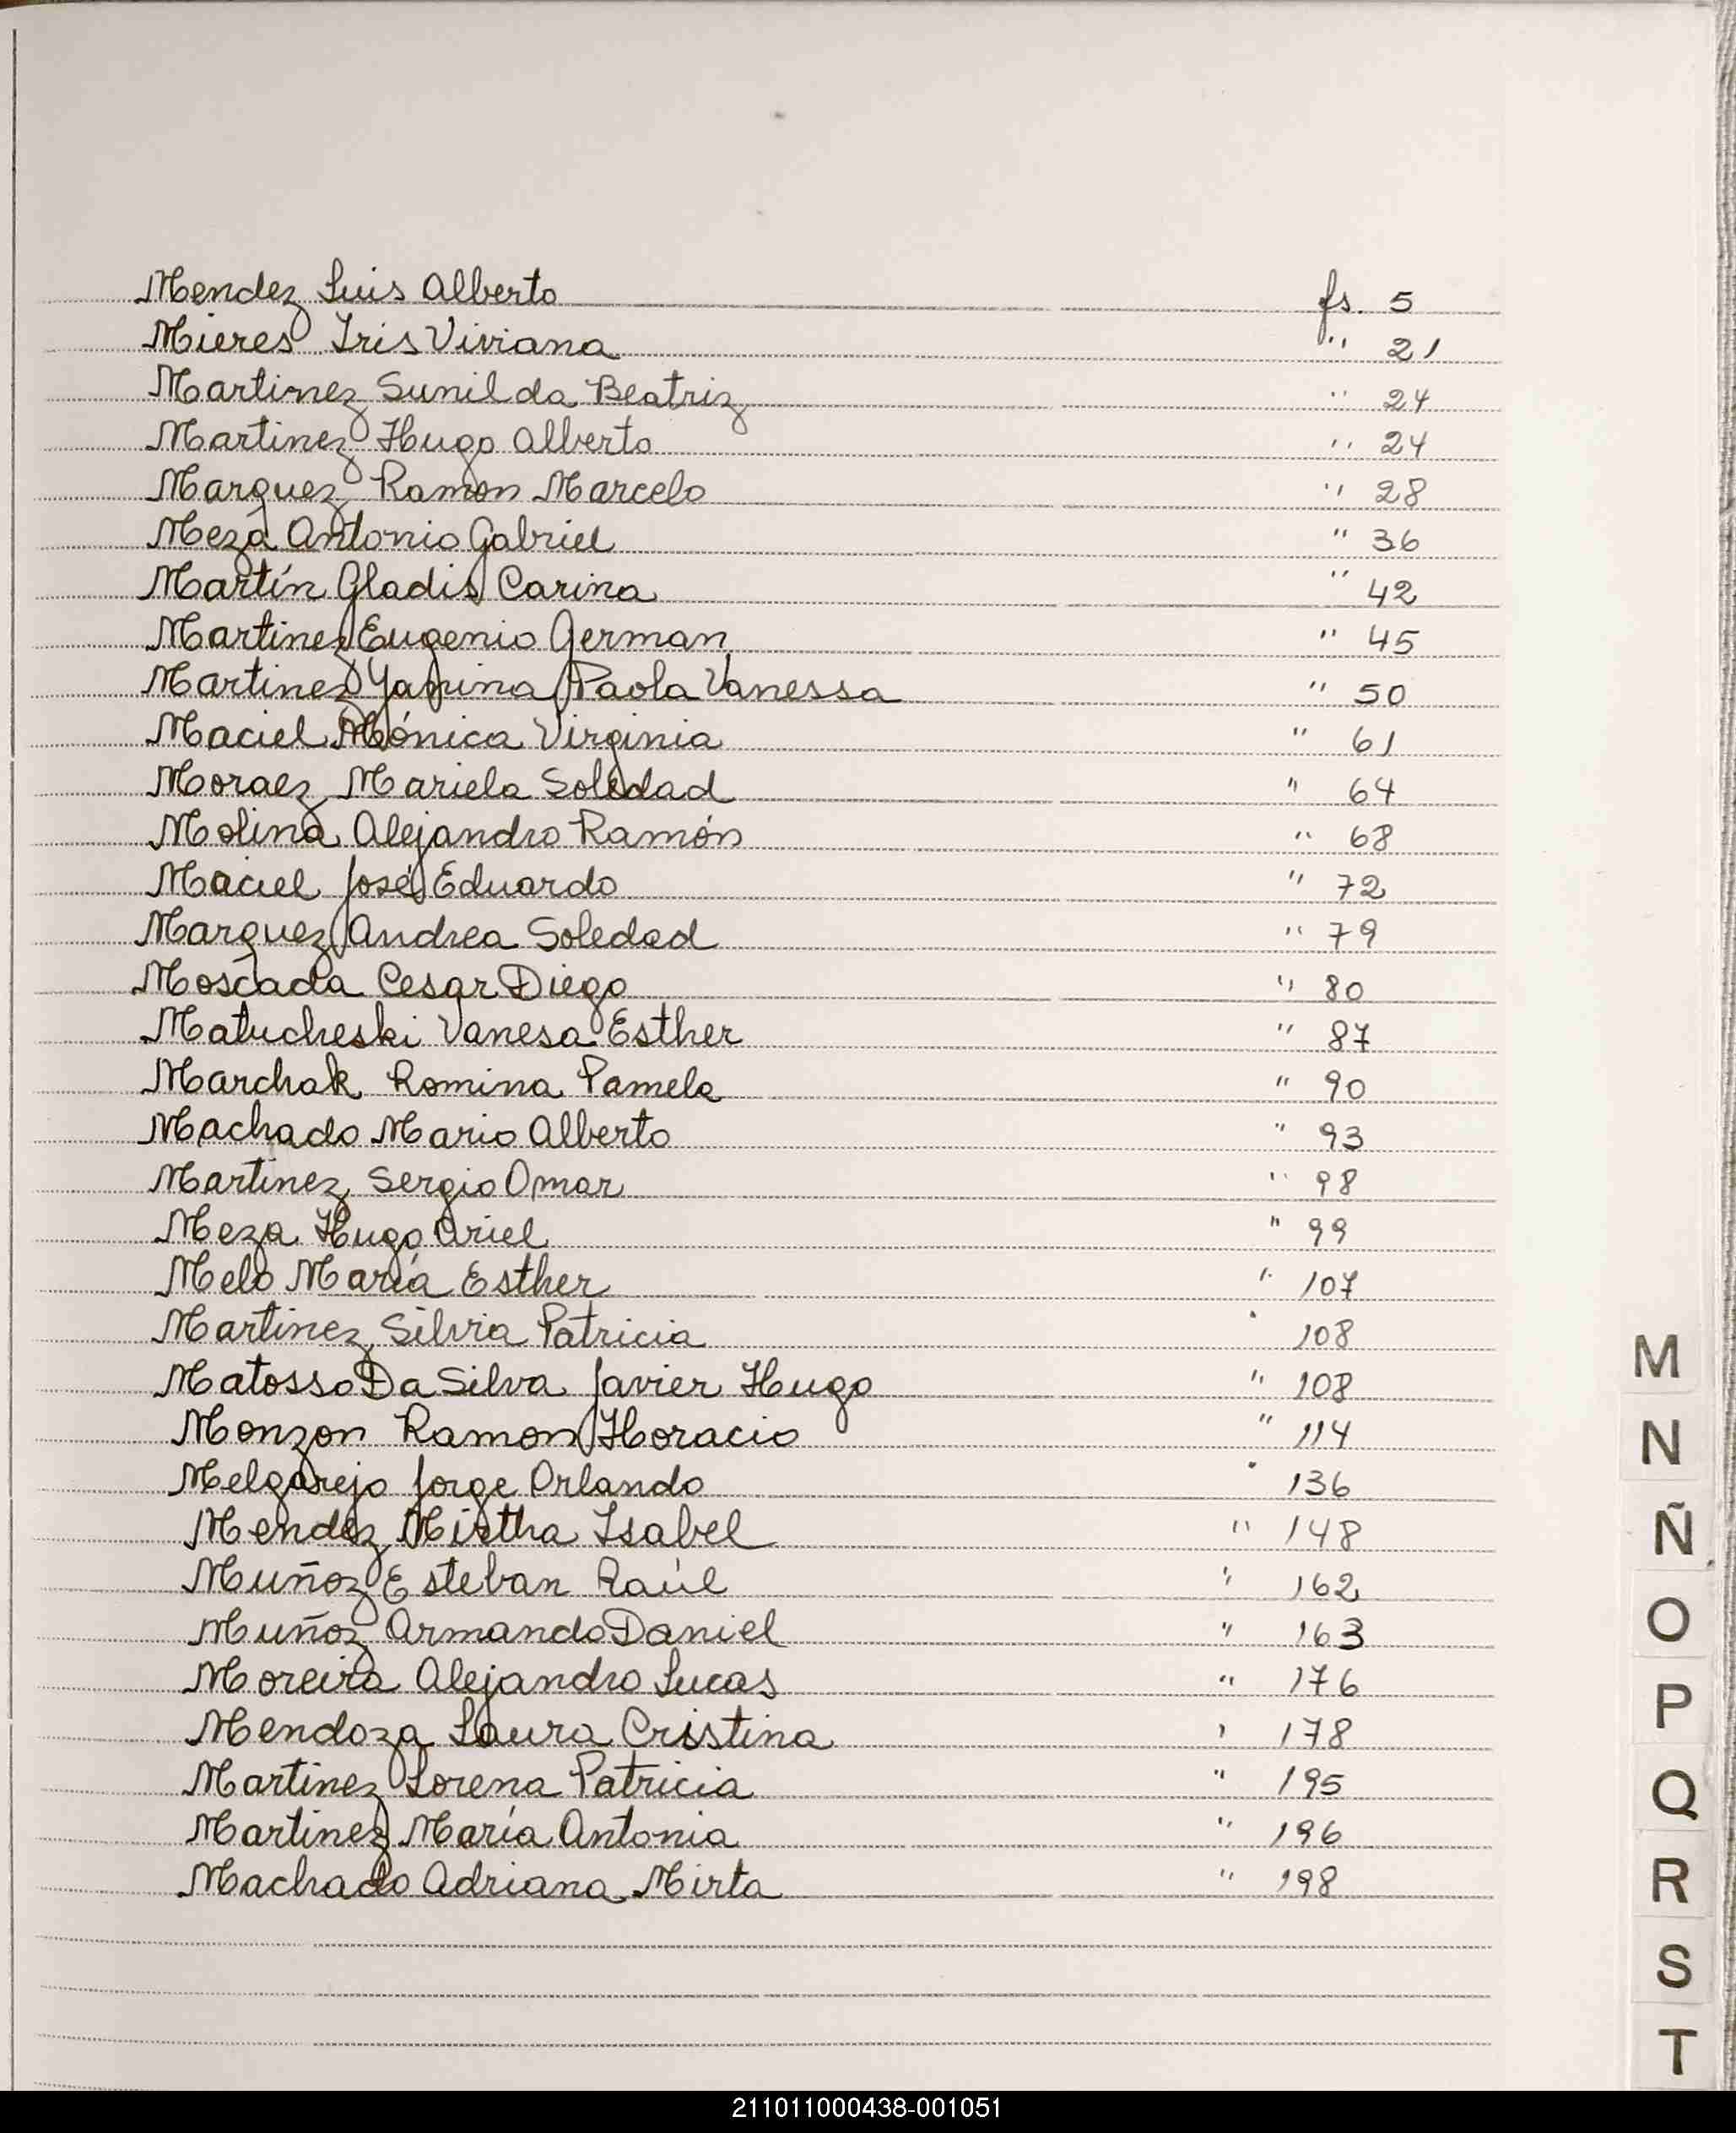 Mendez Luis Alberto fs. 5
Mieres Iris Viviana " 21
Martinez Sunilda Beatriz " 24
Martinez Hugo Alberto " 24
Marquez Ramon Marcelo " 28
Meza Antonio Gabriel " 36
Martín Gladis Carina " 42
Martinez Eugenio German " 45
Martinez Yamina Paola Vanessa " 50
Maciel Mónica Virginia " 61
Moraez Mariela Soledad " 64
Molina Alejandro Ramón " 68
Maciel José Eduardo " 72
Marquez Andrea Soledad " 79
Moscada Cesar Diego " 80
Matucheski Vanesa Esther " 87
Marchak Romina Pamela " 90
Machado Mario Alberto " 93
Martinez Sergio Omar " 98
Meza Hugo Ariel " 99
Melo María Esther " 107
Martinez Silvia Patricia " 108
Matosso Da Silva Javier Hugo " 108
Monzon Ramon Horacio " 114
Melgarejo Jorge Orlando " 136
Mendez Mirtha Isabel " 148
Muñoz Esteban Raúl " 162
Muñoz Armando Daniel " 163
Moreira Alejandro Lucas " 176
Mendoza Laura Cristina " 178
Martinez Lorena Patricia " 195
Martinez María Antonia " 196
Machado Adriana Mirta " 198
M
N
Ñ
O
P
Q
R
S
T
211011000438-001051